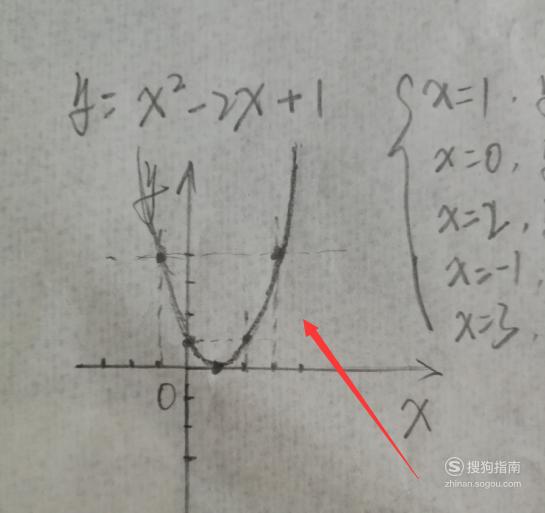 y = x² - 2x + 1
x = 1,
x = 0,
x = 2,
x = -1,
x = 3,
y
0
x
搜狗指南
zhinan.sogou.com